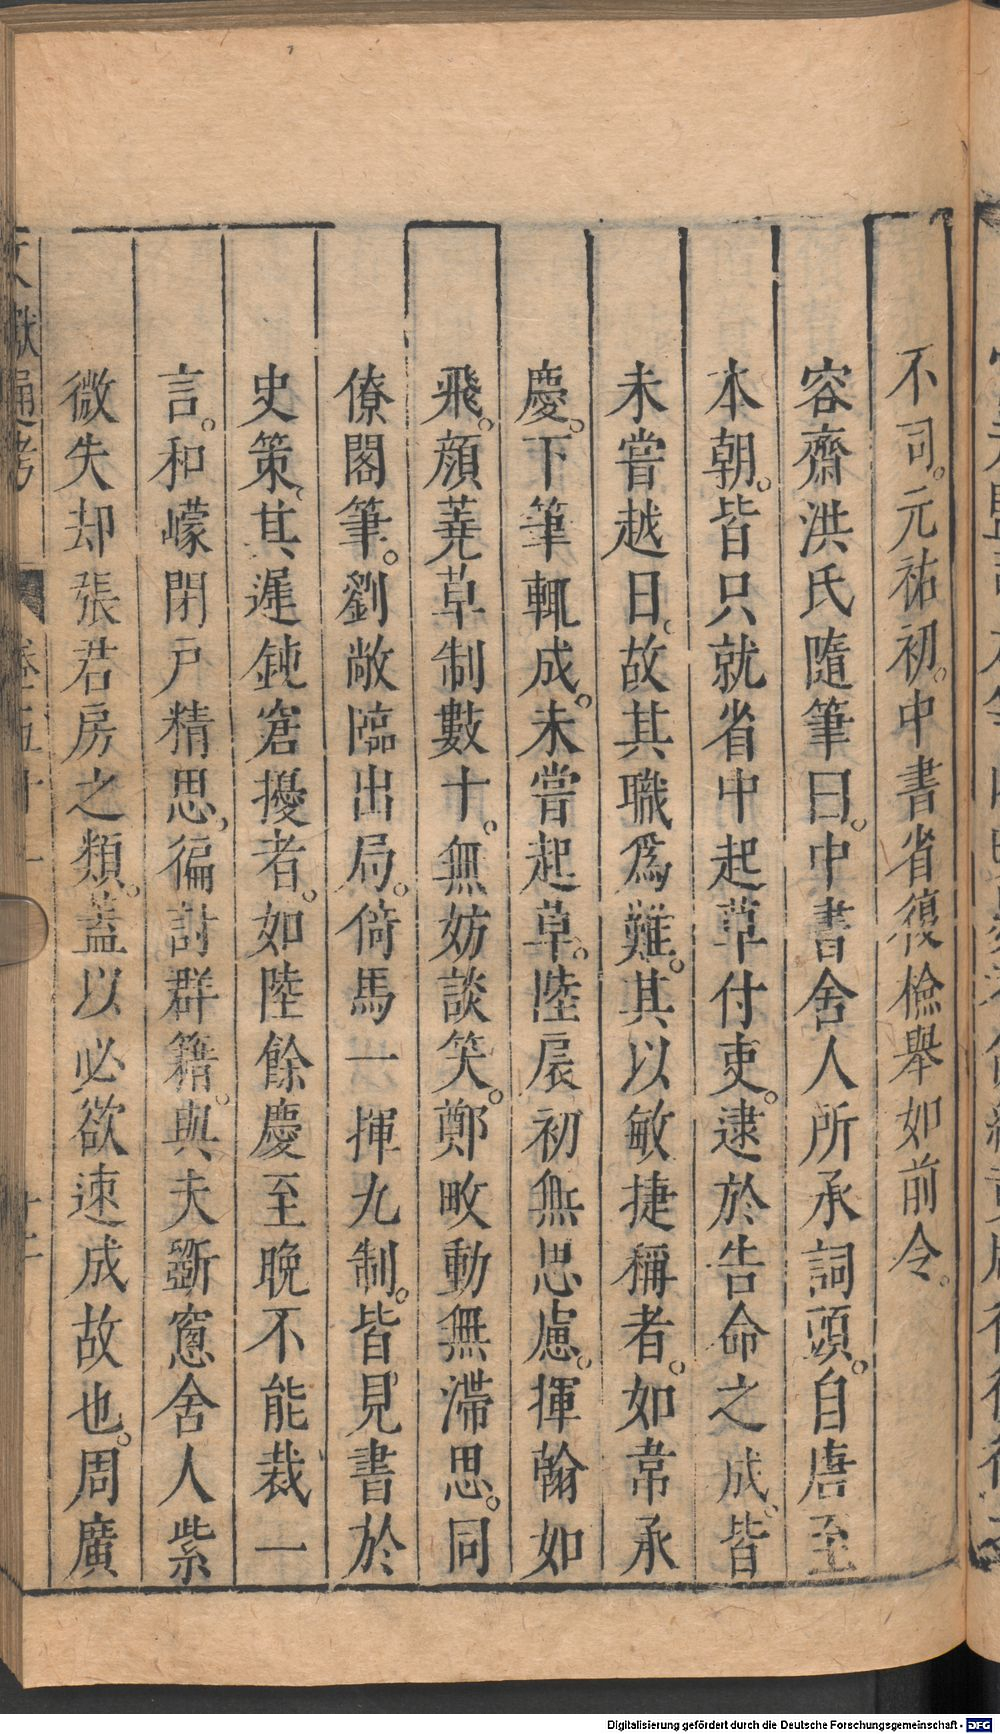 不司。元祐初。中書省復檢舉如前令。
容齋洪氏隨筆曰。中書舍人所承詞頭。自唐至
本朝。皆只就省中起草付吏。逮於告命之成。皆
未嘗越日。故其職爲難。其以敏捷稱者。如韋承
慶。下筆輒成。未嘗起草。陸扆初無思慮。揮翰如
飛。顔蕘草制數十。無妨談笑。鄭畋動無滯思。同
僚閣筆。劉敞臨出局。倚馬一揮九制。皆見書於
史策。其遲鈍窘擾者。如陸餘慶至晚不能裁一
言。和㠓閉戸精思。徧討群籍。與夫斵窻舍人紫
微失却張君房之類。蓋以必欲速成故也。周廣
文獻通考 卷五十一
Digitalisierung gefördert durch die Deutsche Forschungsgemeinschaft - DFG